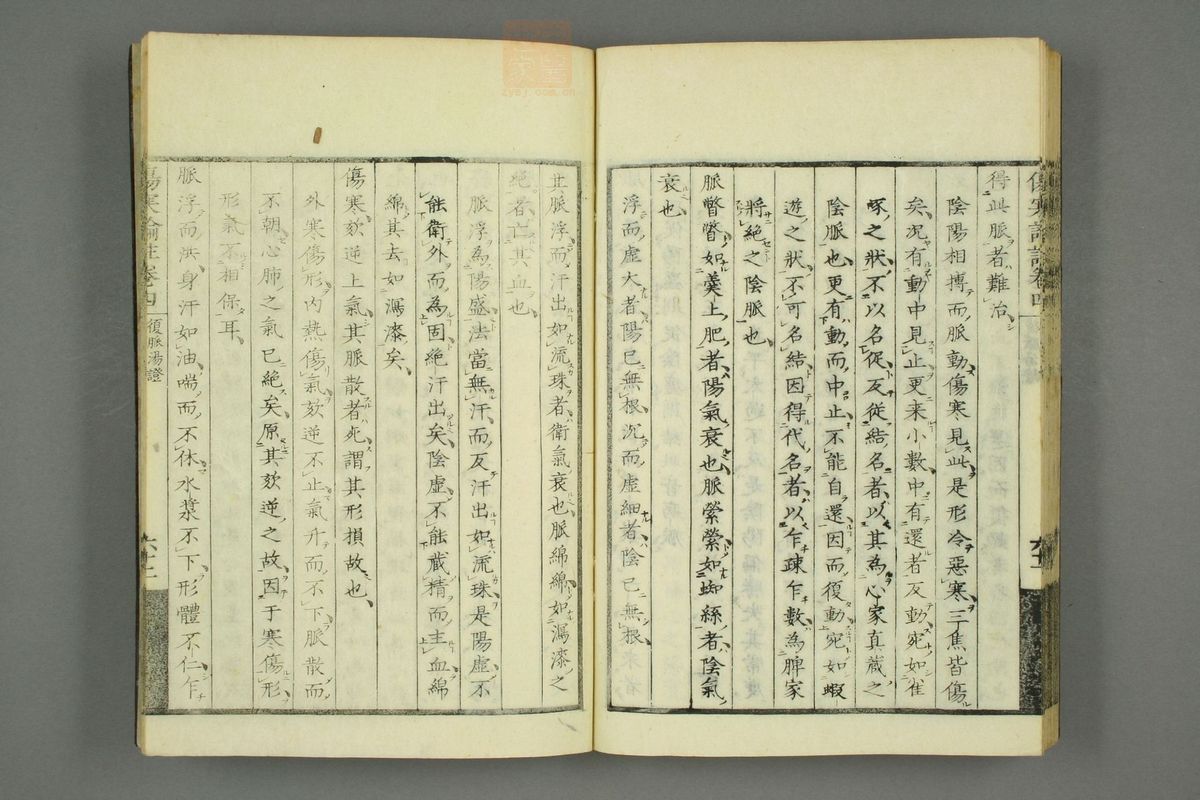 得此脈者難治
陰陽相搏而脈動傷寒見此是形冷惡寒三焦皆傷
矣況有動中見止更来小數中有還者反動宛如雀
啄之狀不以名促反從結名者以其為心家真藏之
陰脈也更有動而中止不能自還因而復動宛如蝦
遊之狀不可名結因得代名者以乍疎乍數為脾家
將絕之陰脈也
脈瞥瞥如羹上肥者陽氣衰也脈縈縈如蜘絲者陰氣
衰也
浮而虛大者陽已無根沉而虛細者陰已無根
其脈浮而汗出如流珠者衛氣衰也脈綿綿如瀉漆之
絕者亡其血也
脈浮為陽盛法當無汗而反汗出如流珠是陽虛不
能衛外而為固絕汗出矣陰虛不能藏精而主血綿
綿其去如瀉漆矣
傷寒欬逆上氣其脈散者死謂其形損故也
外寒傷形內熱傷氣欬逆不止氣升而不下脈散而
不朝心肺之氣已絕矣原其欬逆之故因于寒傷形
形氣不相保耳
脈浮而洪身汗如油喘而不休水漿不下形體不仁乍
傷寒論註卷四 復脈湯證
zysj.com.cn